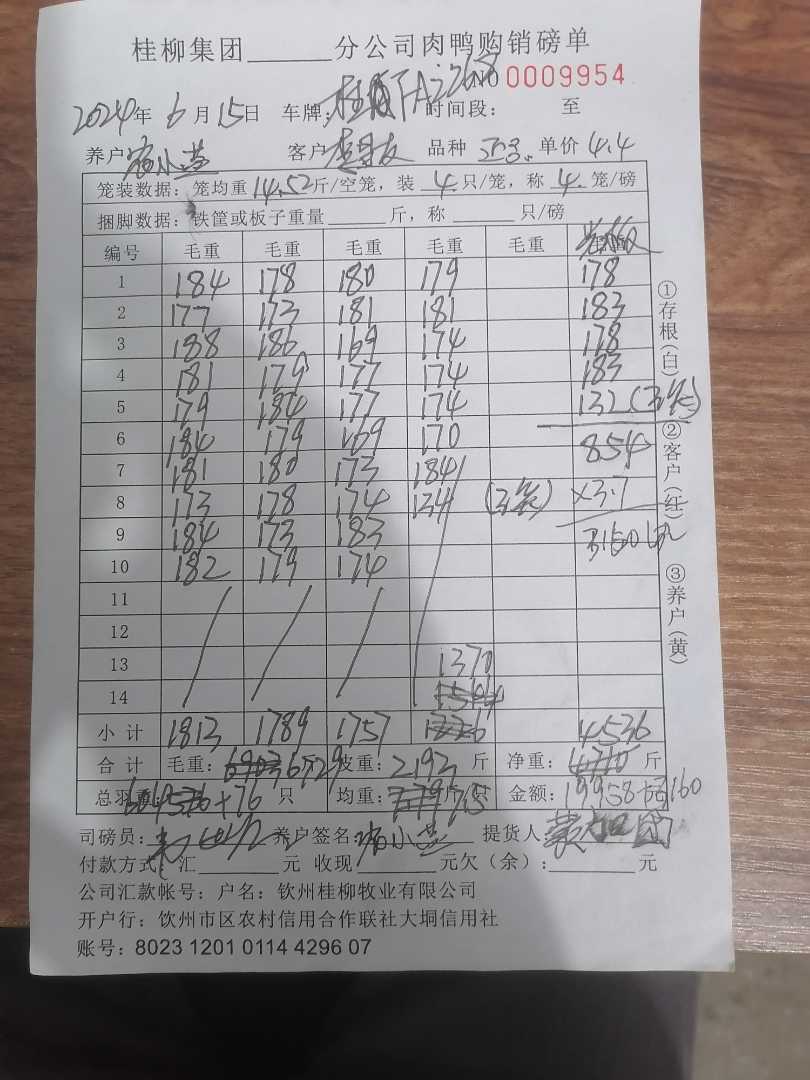 桂柳集团______分公司肉鸭购销磅单
NO 0009954
2024年 6月15日 车牌: 时间段: 至
养户 小燕 客户 品种 单价 4.4
笼装数据: 笼均重 14.52 斤/空笼, 装 4 只/笼, 称 4 笼/磅
捆脚数据: 铁筐或板子重量______斤, 称______只/磅
编号 毛重 毛重 毛重 毛重 毛重
1 184 178 180 179 178
2 177 173 181 181 183
3 188 186 169 174 178
4 181 179 177 174 183
5 179 184 177 174 132 (3笼)
6 184 179 169 170 854
7 181 180 173 184
8 173 178 174 134 (3笼) ×3.7
9 184 173 183 3160
10 182 179 174
11
12
13 1370
14
小计 1813 1789 1757 4536
合计 毛重: 6729 皮重: 2193 斤 净重: 斤
总羽 +76 只 均重: 金额: 19958+3160
司磅员: 养户签名 小燕 提货人
付款方式: 汇______元 收现______元欠(余):______元
公司汇款帐号: 户名: 钦州桂柳牧业有限公司
开户行: 钦州市区农村信用合作联社大垌信用社
账号: 8023 1201 0114 4296 07
①存根(白) ②客户(红) ③养户(黄)